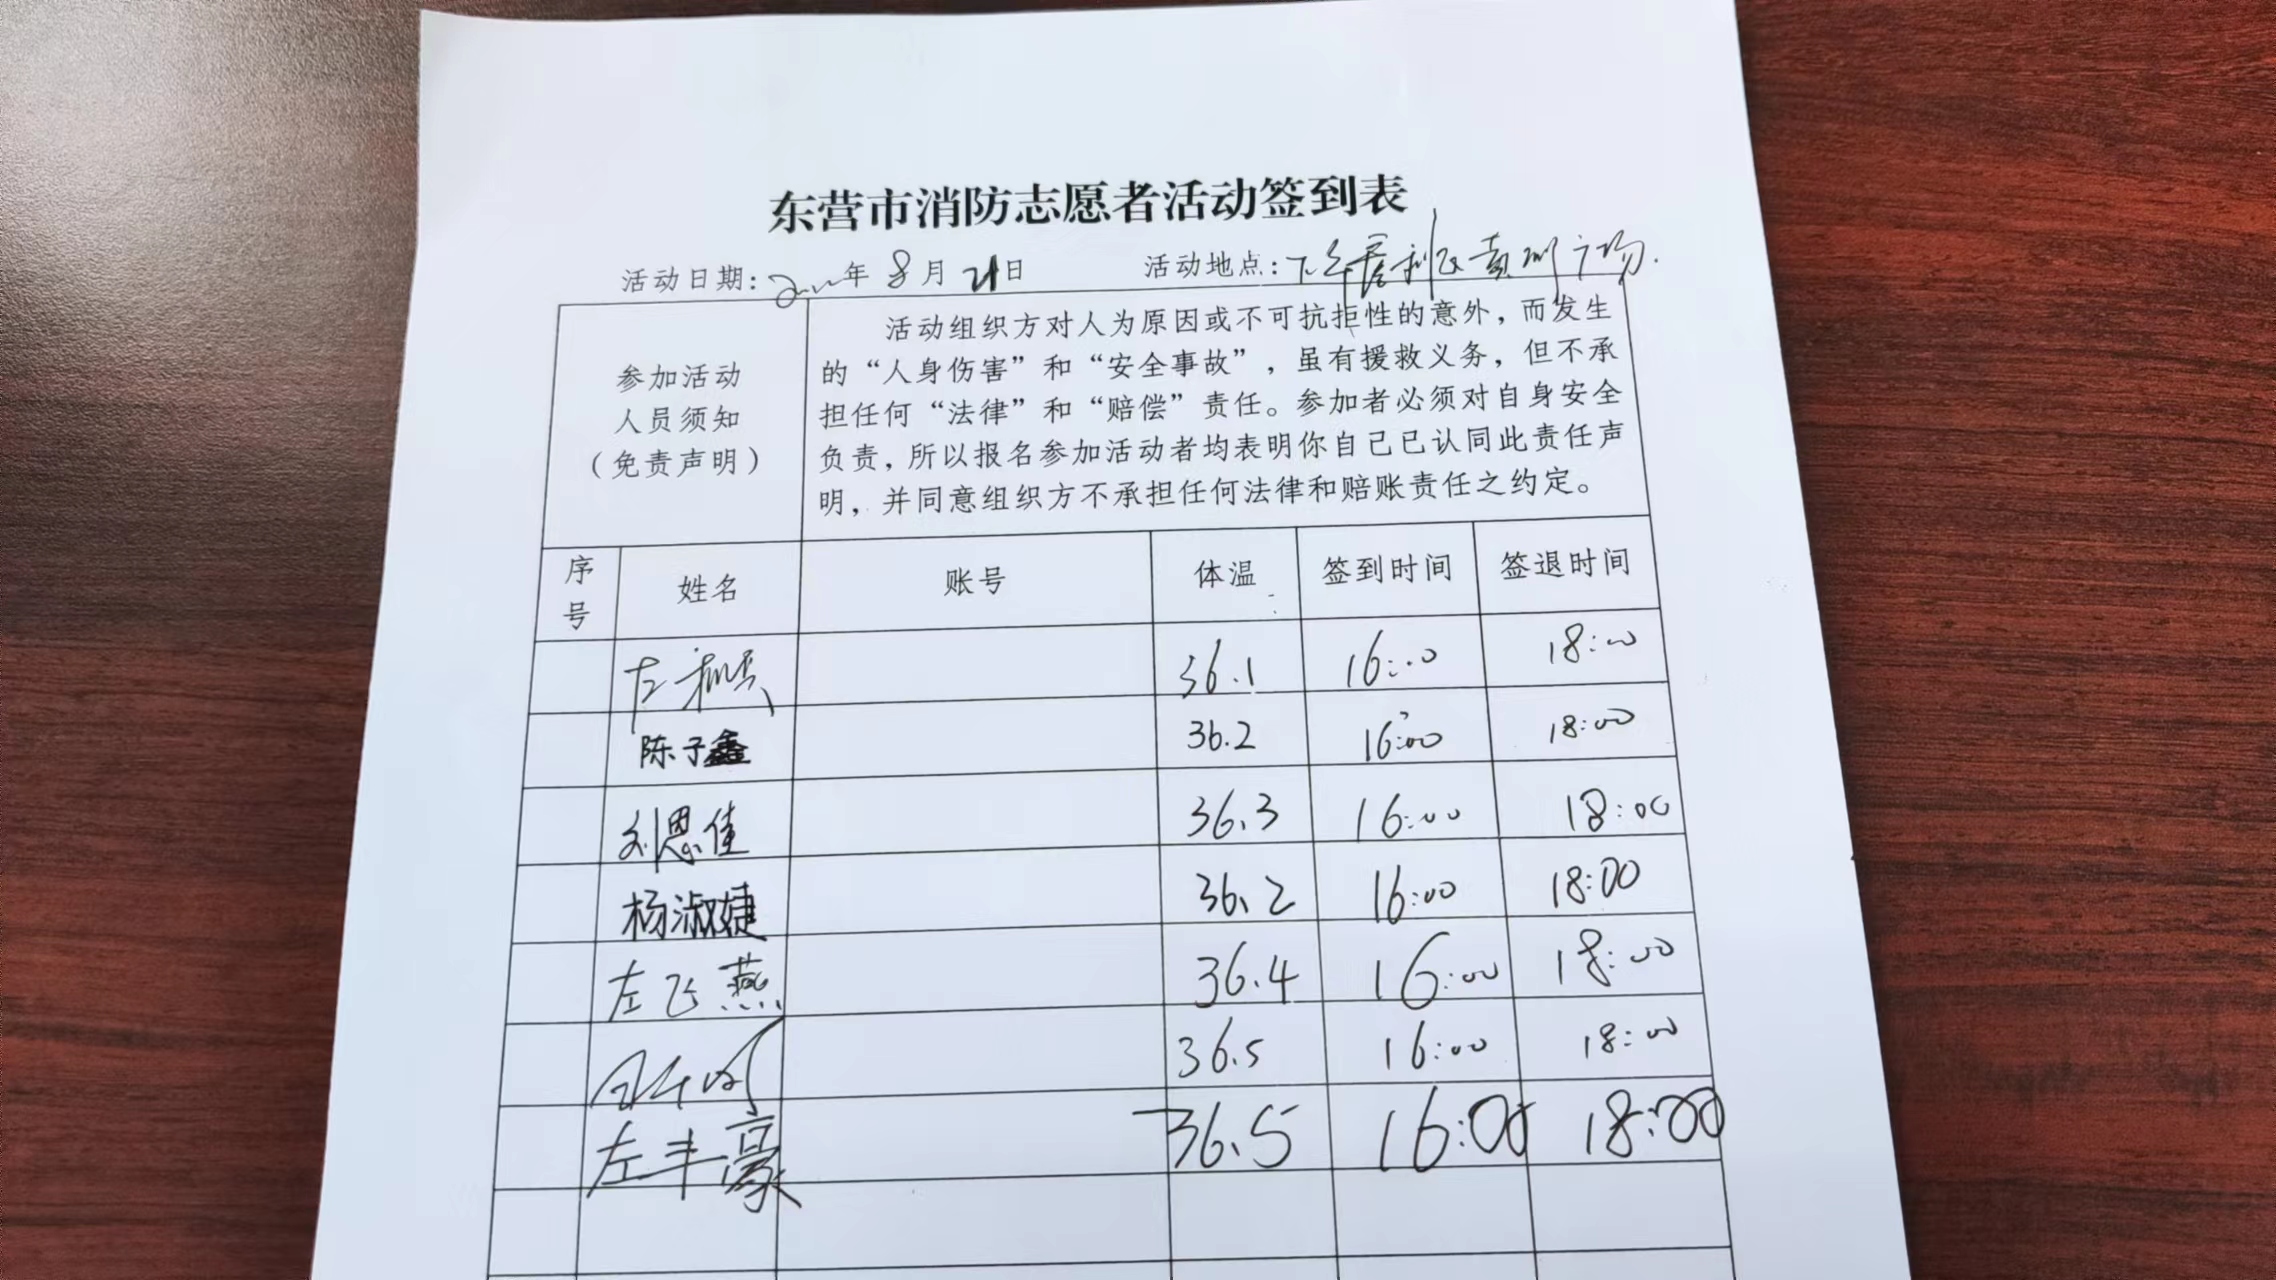 东营市消防志愿者活动签到表
活动日期: 年 8 月 21 日 活动地点: 广场.
参加活动
人员须知
（免责声明）
活动组织方对人为原因或不可抗拒性的意外，而发生
的“人身伤害”和“安全事故”，虽有援救义务，但不承
担任何“法律”和“赔偿”责任。参加者必须对自身安全
负责，所以报名参加活动者均表明你自己已认同此责任声
明，并同意组织方不承担任何法律和赔账责任之约定。
序号 姓名 账号 体温 签到时间 签退时间
左 36.1 16:00 18:00
陈子鑫 36.2 16:00 18:00
刘恩佳 36.3 16:00 18:00
杨淑婕 36.2 16:00 18:00
左飞燕 36.4 16:00 18:00
36.5 16:00 18:00
左丰豪 36.5 16:00 18:00